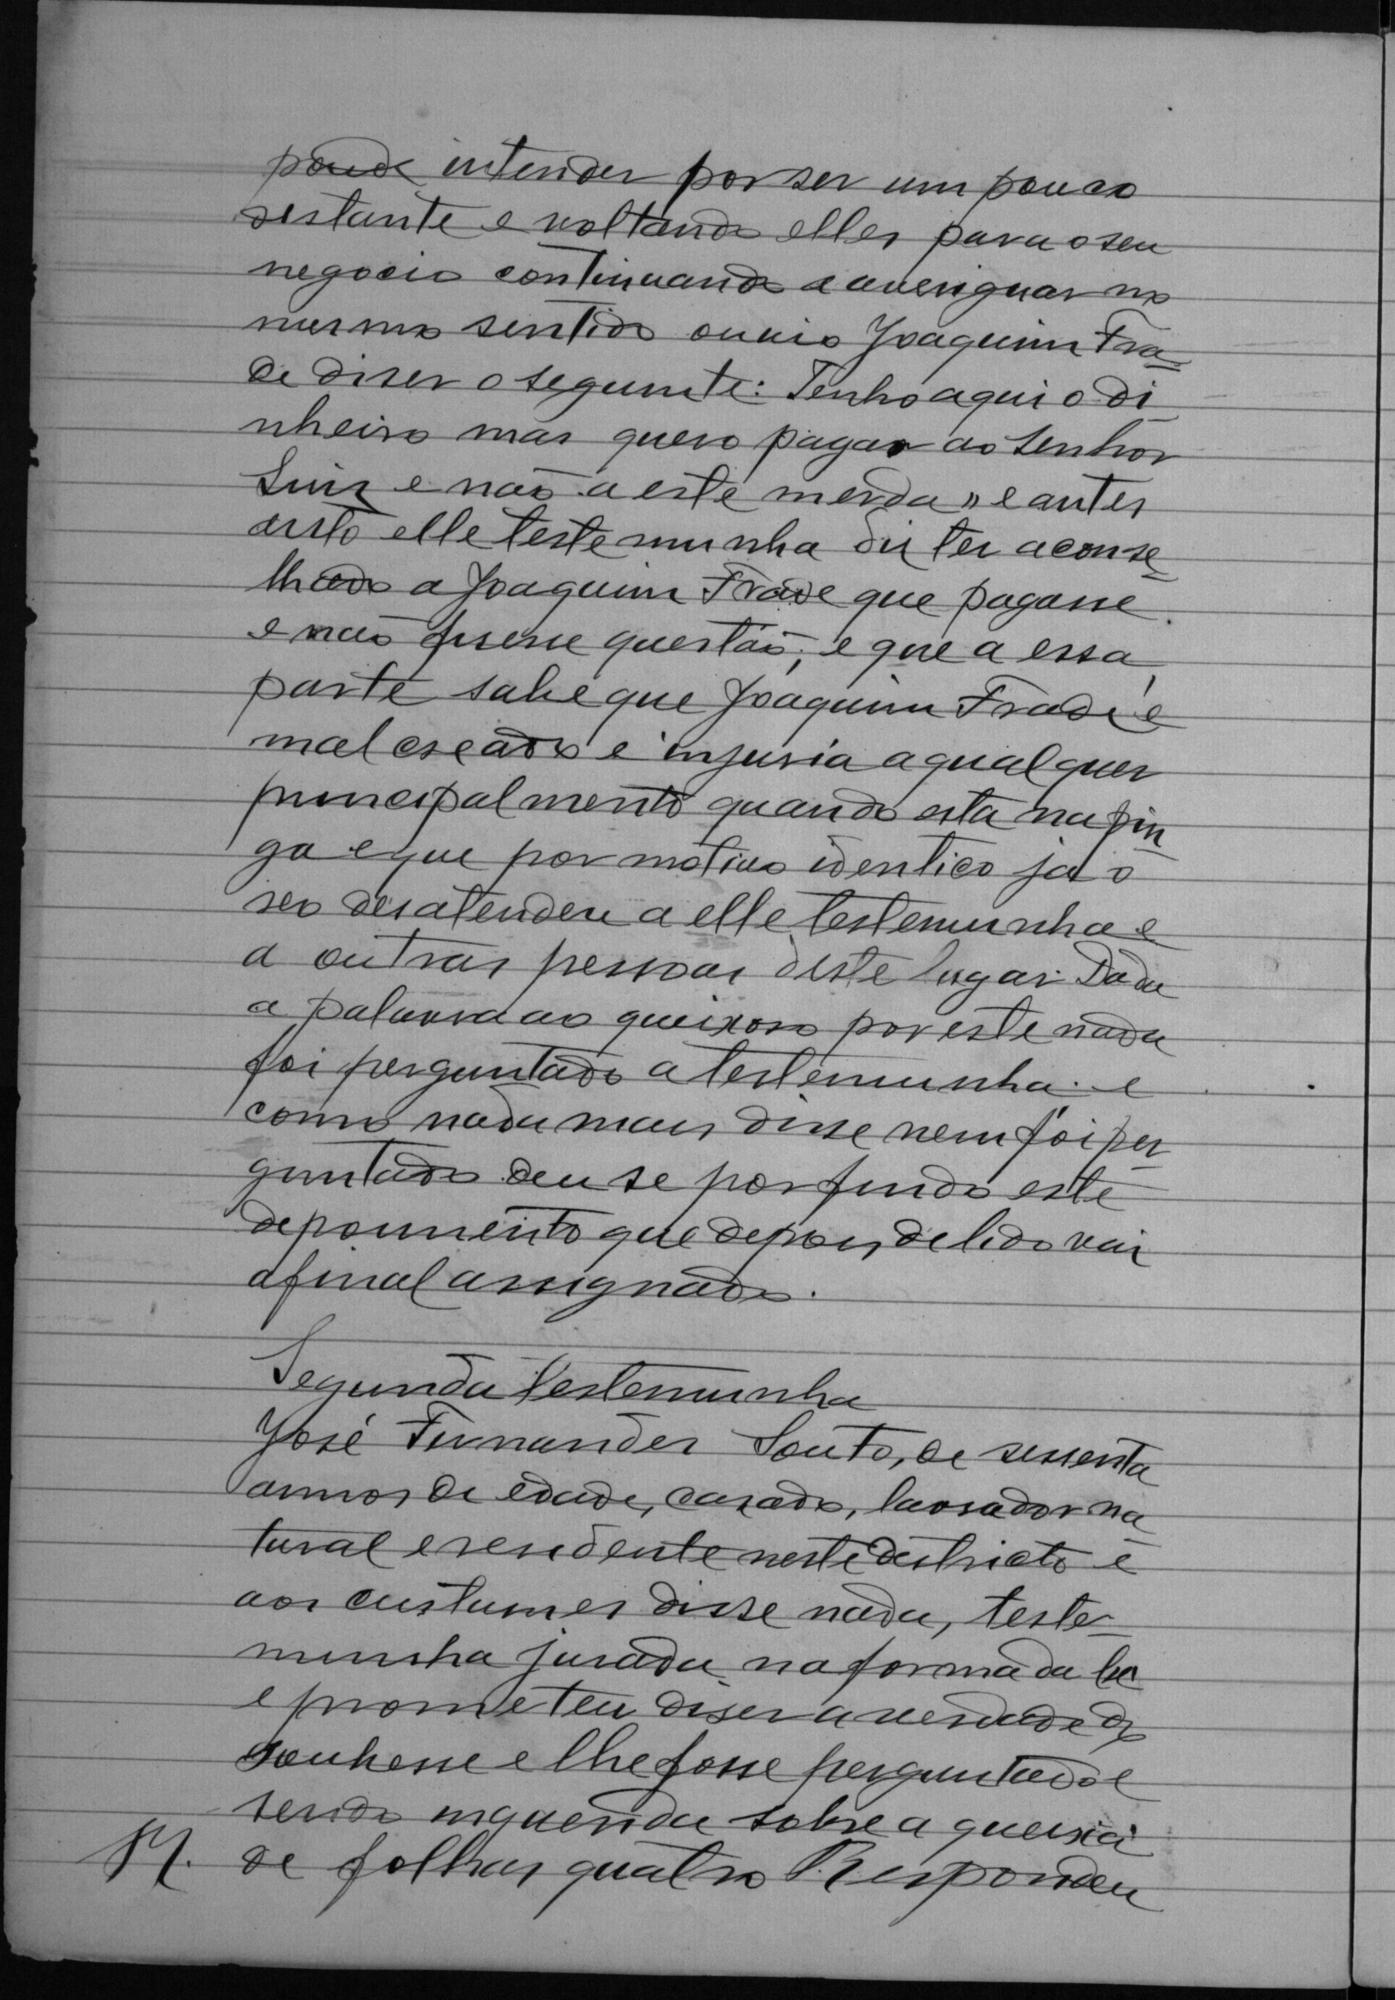 poude intender por ser um pouco
destante e voltando elles para o seu
negocio continuando a averiguar no
mesmo sentido ouvio Joaquim Fra-
de diser o seguinte: Tenho aqui o di
nheiro mas quero pagar ao Senhor
Luiz e não a este merda » e antes
disto elle testemunha diz ter aconse-
lhado a Joaquim Frade que pagasse
e não fisesse questão, e que a essa
parte sabe que Joaquim Frade é
mal creado e injuria a qualquer
principalmente quando esta na pin
ga e que por motivo identico ja o
reo desatendeu a elle testemunha e
a outras pessoas deste lugar. Dada
a palavra ao queixoso por este nada
foi perguntado a testemunha. e
como nada mais disse nem foi per-
guntado deu se por findo este
depoimento que depois de lido vai
afinal assignado.
Segunda testemunha
José Fernandes Souto, de sessenta
annos de edade, casado, lavrador na
tural e residente neste destricto e
aos custumes disse nada, teste-
munha jurada na forma da lei
e prometeu diser a verdade do
souhesse e lhe fosse perguntado e
sendo inquerida sobre a queixa
de folhas quatro Respondeu